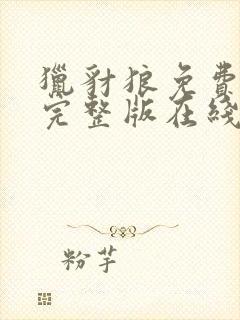 獵豺狼免費
完整版在綫
粉芋